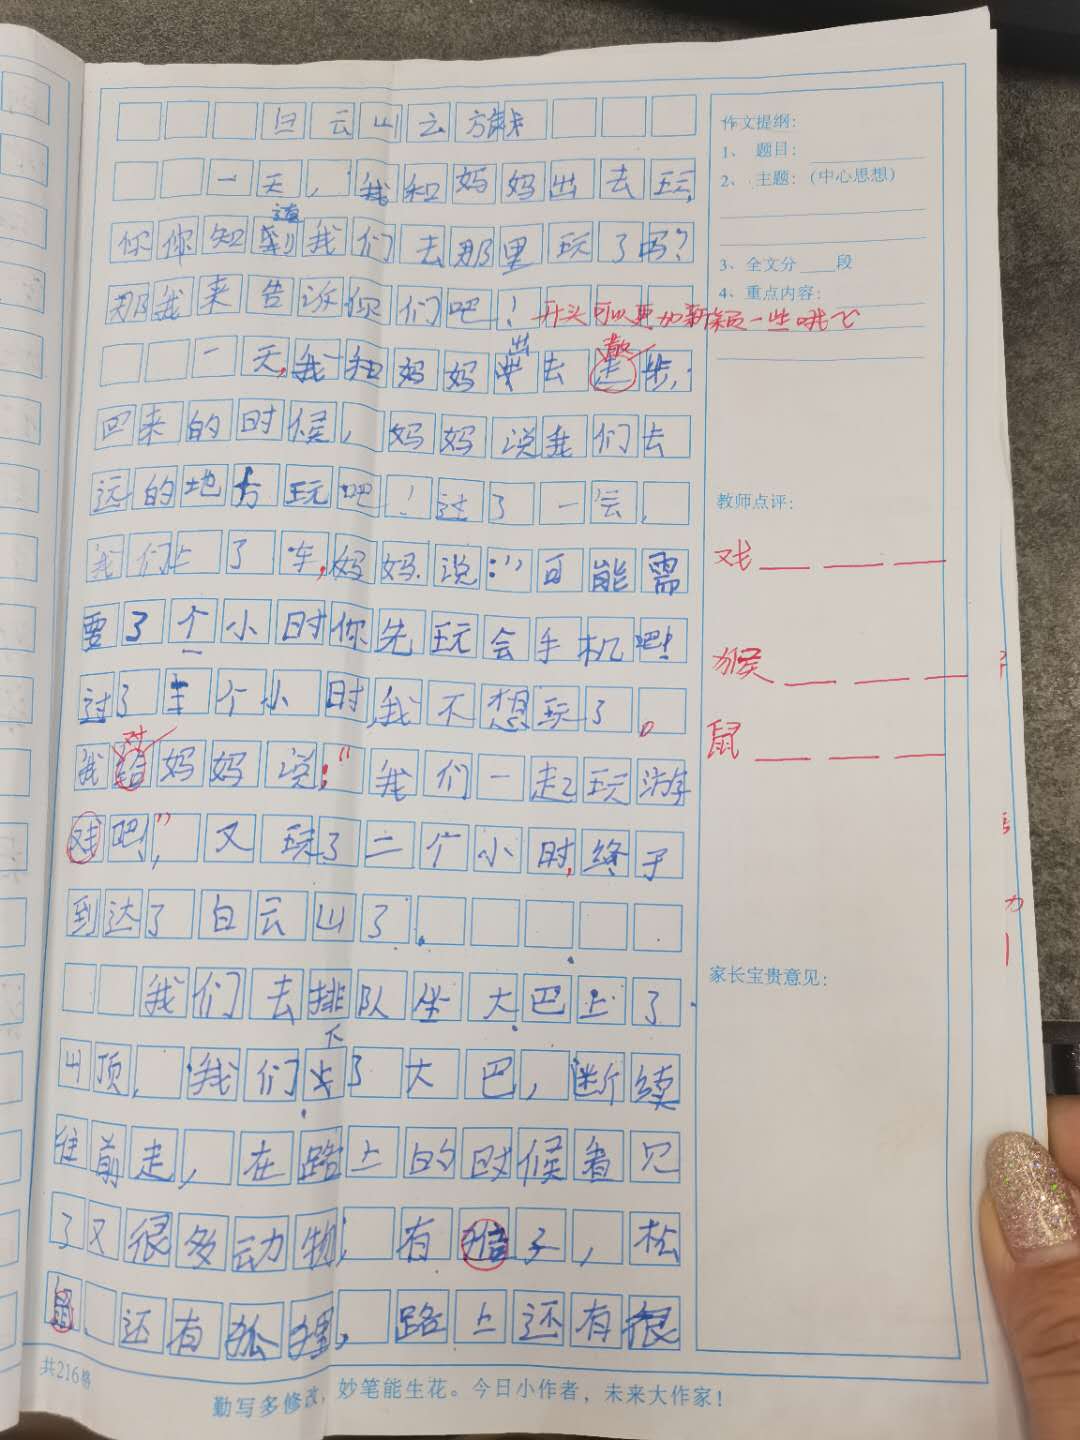 白云山之旅
一天，我和妈妈出去玩，
你你知道我们去那里玩了吗？
那我来告诉你们吧！
开头可以更加新颖一些哦
一天，我和妈妈出去散步，
回来的时候，妈妈说我们去
远的地方玩吧！过了一会，
我们上了车，妈妈说：“可能需
要了个小时你先玩会手机吧！
过了三个小时我不想玩了。
我对妈妈说：“我们一起玩游
戏吧！”又玩了二个小时，终于
到达了白云山了.
我们去排队坐大巴上了
山顶，我们下了大巴，断续
往前走，在路上的时候看见
了又很多动物，有子，松
鼠、还有狐狸，路上还有很
共216格
勤写多修改，妙笔能生花。今日小作者，未来大作家！
作文提纲：
1、题目：
2、主题：(中心思想)
3、全文分____段
4、重点内容：
教师点评：
戏
猴
鼠
家长宝贵意见：